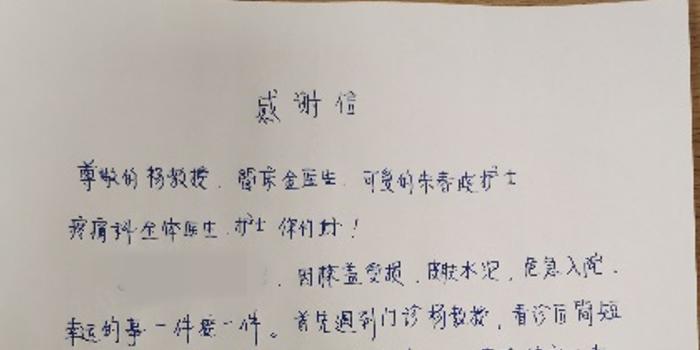 感谢信
尊敬的杨教授、管床金医生、可爱的朱春波护士
疼痛科全体医生、护士 你们好！
因膝盖受损，皮肤水泡，危急入院，
幸运的事一件接一件。首先遇到门诊杨教授，看诊后简短